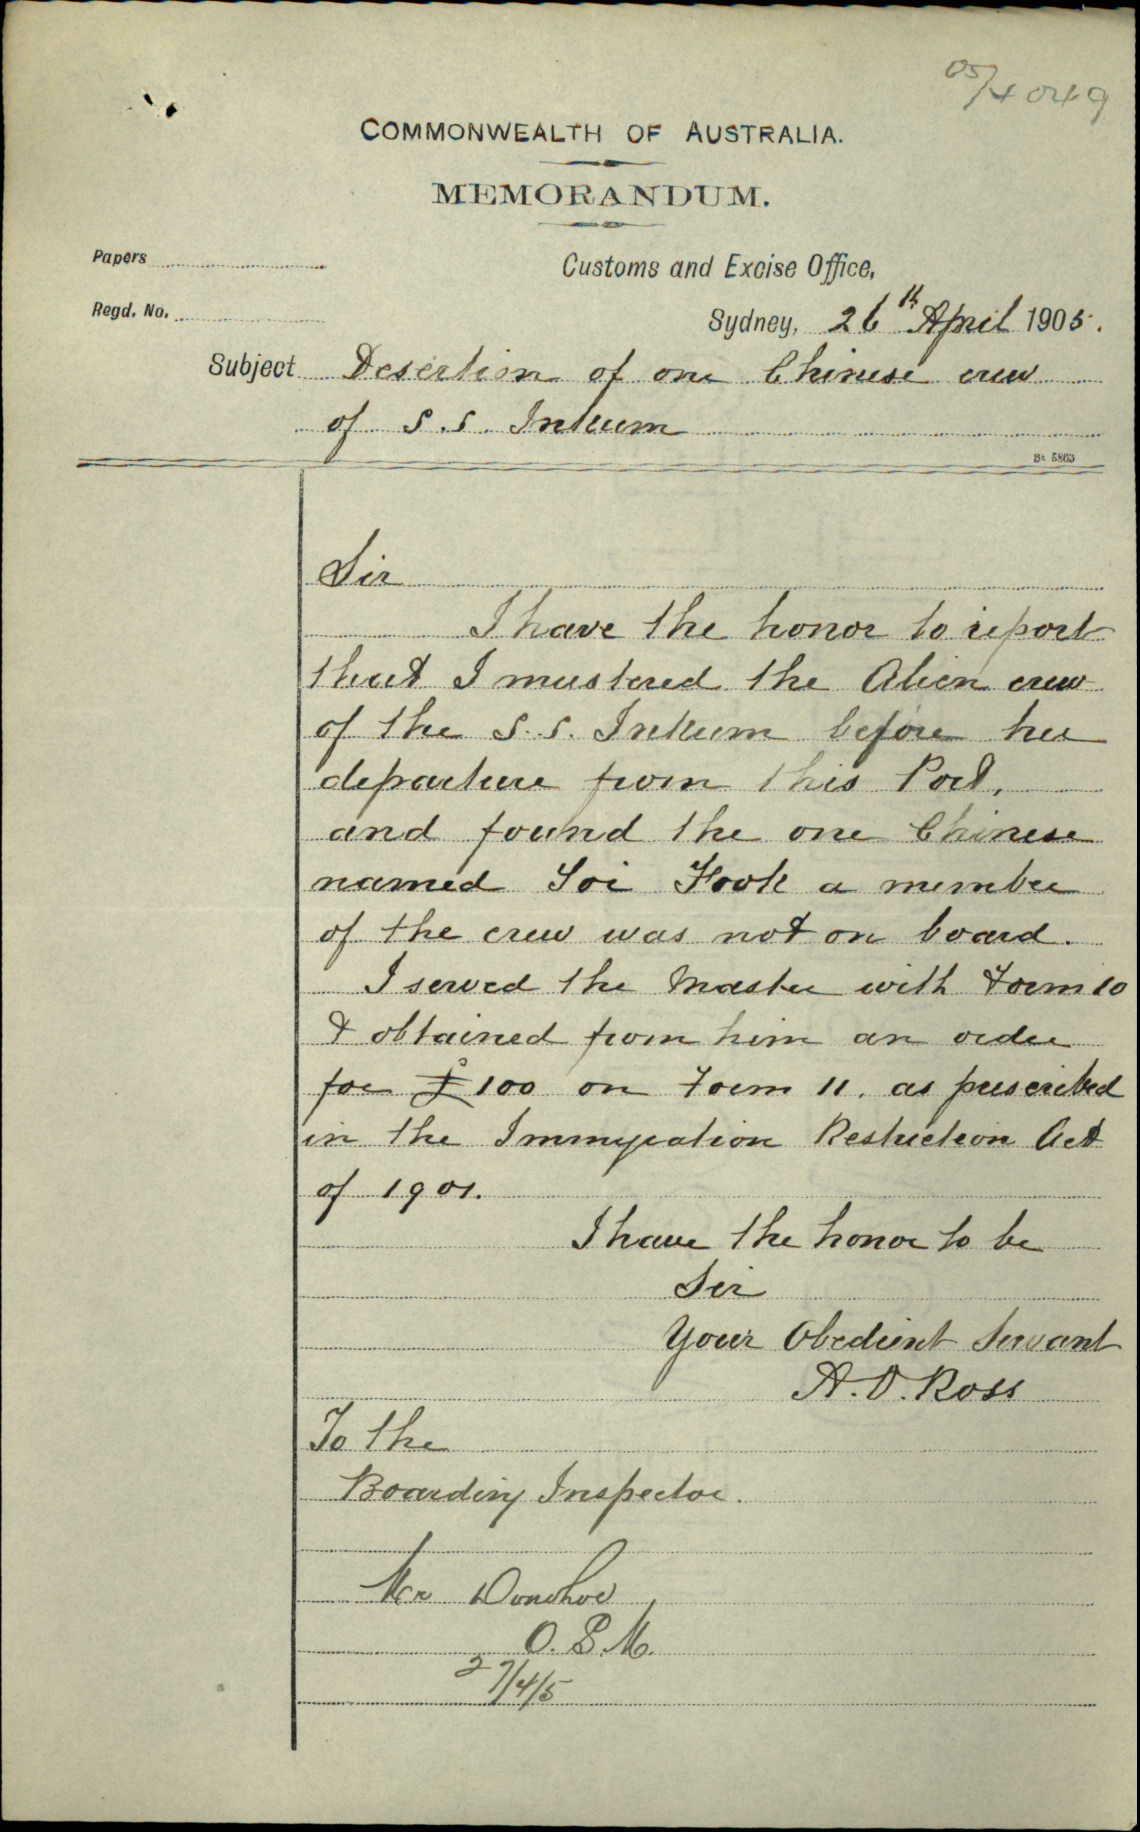 05/4049
COMMONWEALTH OF AUSTRALIA.
MEMORANDUM.
Papers
Customs and Excise Office,
Regd. No.
Sydney, 26th April 1905.
Subject Desertion of one Chinese crew
of S.S. Inkum
Sir
I have the honor to report
that I mustered the Alien crew
of the S.S. Inkum before her
departure from this Port,
and found the one Chinese
named Soi Fook a member
of the crew was not on board.
I served the Master with Form 10
& obtained from him an order
for £100 on Form 11. as prescribed
in the Immigration Restriction Act
of 1901.
I have the honor to be
Sir
Your Obedient Servant
A. D. Ross
To the
Boarding Inspector.
Mr Donohoe
27/4/5